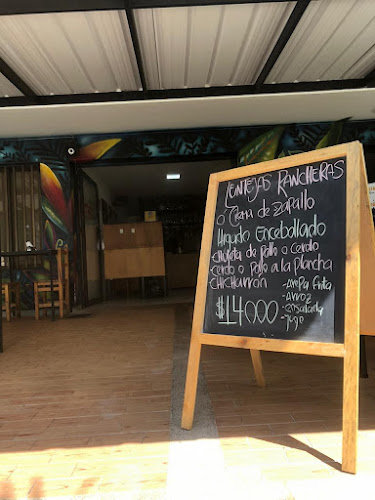 Lentejas Rancheras
o Crema de Zapallo
Higado Encebollado
chuleta de Pollo o Cerdo
Cerdo o Pollo a la plancha
Chicharron
$14000
- Arepa Frita
- Arroz
- Ensalada
- Jugo